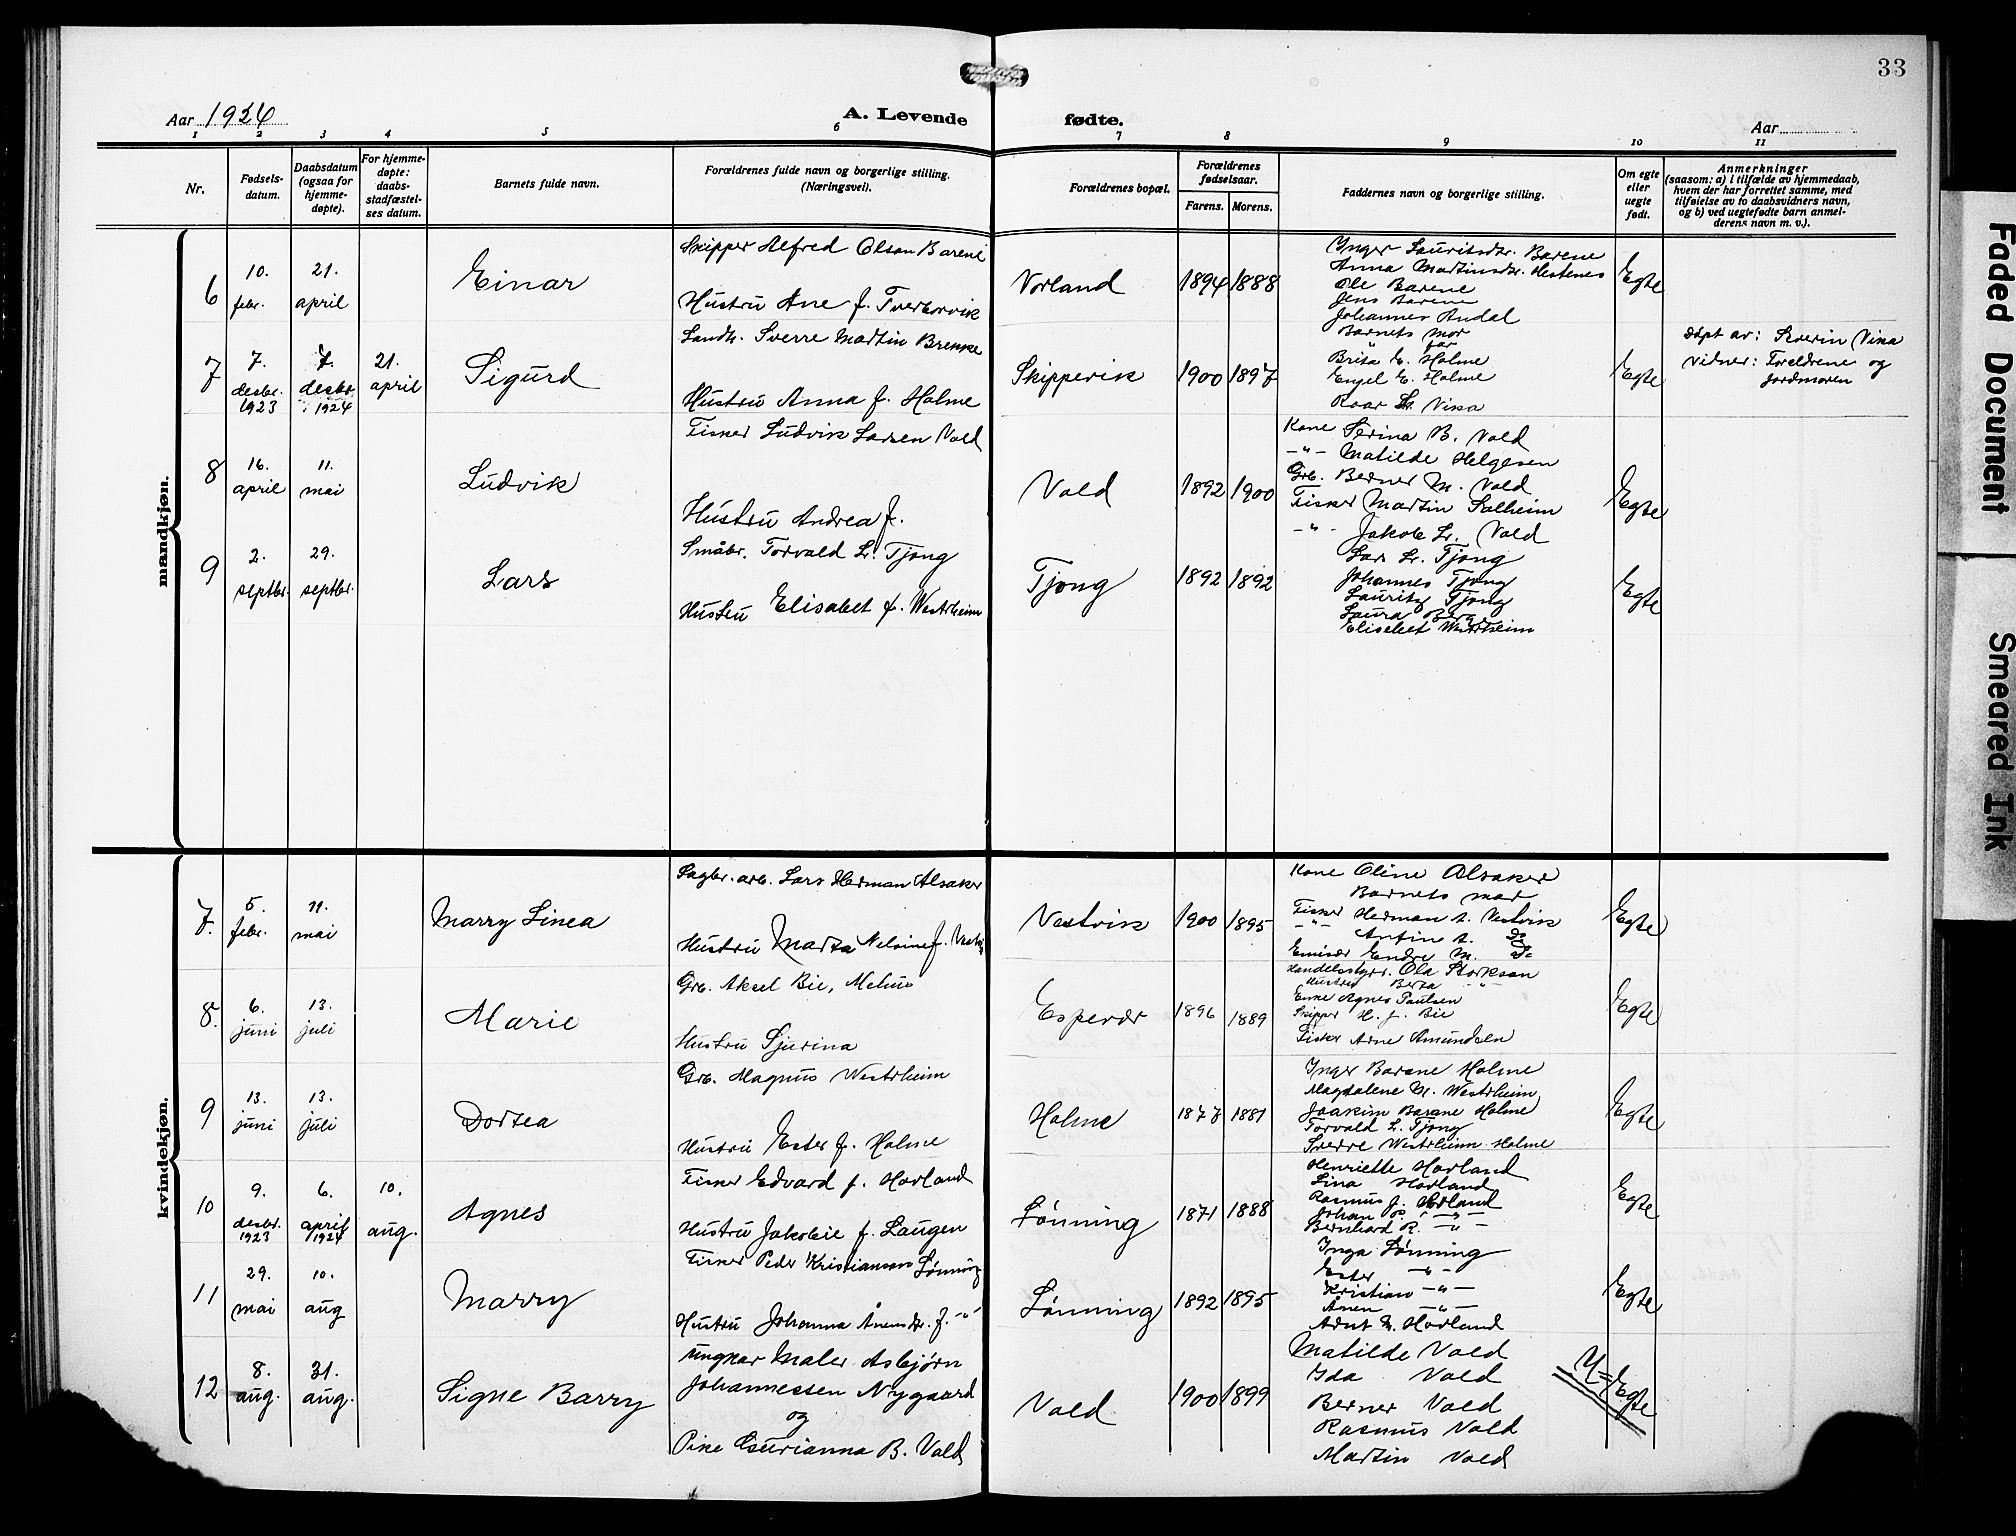 33
Aar 1924
A. Levende
fødte.
Aar
1 2 3 4 5 6 7 8 9 10 11
Nr.
Fødsels-
datum.
Daabsdatum
(ogsaa for
hjemme-
døpte).
For hjemme-
døpte:
daabs-
stadfæstel-
ses datum.
Barnets fulde navn.
Forældrenes fulde navn og borgerlige stilling.
(Næringsvei).
Forældrenes bopæl.
Forældrenes
fødselsaar.
Farens. Morens.
Faddernes navn og borgerlige stilling.
Om egte
eller
uegte
født.
Anmerkninger
(saasom: a) i tilfælde av hjemmedaab,
hvem der har forrettet samme, med
tilføielse av to daabsvidners navn,
og b) ved uegtefødte barn anmel-
derens navn m. v.).
mandkjøn.
6
10.
febr.
21.
april
Einar
Skipper Alfred Olson Barene
Hustru Ane f. Tverborvik
Vorland
1894 1888
Inger Lauritsdtr. Barene
Anna Martinsdtr. Hestenes
Ole Barene
Jens Barene
Johannes Andal
Egte
7
7.
desbr.
1923
7.
desbr.
1924
21.
april
Sigurd
Landh. Sverre Martin Brekke
Hustru Anna f. Holme
Skippervik
1900 1897
Barnets mor
" far
Brita E. Holme
Engel E. Holme
Roar Vika
Egte
Døpt av: Severin Vika
Vidner: Foreldrene og
jordmoren
8
16.
april
11.
mai
Ludvik
Fisker Ludvik Larsen Vold
Hustru Andrea f.
Vold
1892 1900
Kone Serina B. Vold
-"- Matilde Helgesen
Grb. Berner M. Vold
Fisker Martin Solheim
-"- Jakob L. Vold
Egte
9
2.
septbr.
29.
septbr.
Lars
Småbr. Torvald L. Tjong
Hustru Elisabet f. Westrheim
Tjong
1892 1892
Lars L. Tjong
Johannes Tjong
Laurits Tjong
Laura Berge
Elisabet Westrheim
Egte
kvindekjøn.
7.
5.
febr.
11.
mai
Marry Linea
Sagbr. arb. Lars Herman Alsaker
Hustru Marta Nelsine f. Vestvik
Vestvik
1900 1895
Kone Oline Alsaker
Barnets mor
Fisker Herman A. Vestvik
-"- Anfin A. do
Emisær Endre M. do
Egte
8.
6.
juni
13.
juli
Marie
Grb. Aksel Bie, Melhus
Hustru Sjurina
Espevær
1896 1889
Handelsstyrr. Ola Storksen
Hustru Berta -"-
Enke Agnes Paulsen
Skipper H. J. Bie
Fisker Arne Amundsen
Egte
9
13.
juni
13.
juli
Dortea
Grb. Magnus Westrheim
Hustru Ester f. Holme
Holme
1877 1881
Inger Barane Holme
Magdalene M. Westrheim
Joakim Barane Holme
Torvald L. Tjong
Sverre Westrheim Holme
Egte
10
9.
desbr.
1923
6.
april
1924
10.
aug.
Agnes
Fisker Edvard J. Hovland
Hustru Jakobie f. Laugen
Lønning
1871 1888
Henriette Hovland
Lina Hovland
Rasmus J. Hovland
Johan -"-
Bernhard R. -"-
Egte
11
29.
mai
10.
aug
Marry
Fisker Peder Kristiansens Lønning
Hustru Johanna Ånensdr. f. -"-
Lønning
1892 1895
Inga Lønning
Ester -"-
Kristian -"-
Ånen -"-
Arnt M. Hovland
Egte
12
8.
aug.
31.
aug.
Signe Barry
Ungkar Maler Asbjørn
Johannessen Nygaard
og
Pike Gurianna B. Vold
Vold
1900 1899
Matilde Vold
Ida Vold
Berner Vold
Rasmus Vold
Martin Vold
U=Egte
Faded Document
Smeared Ink